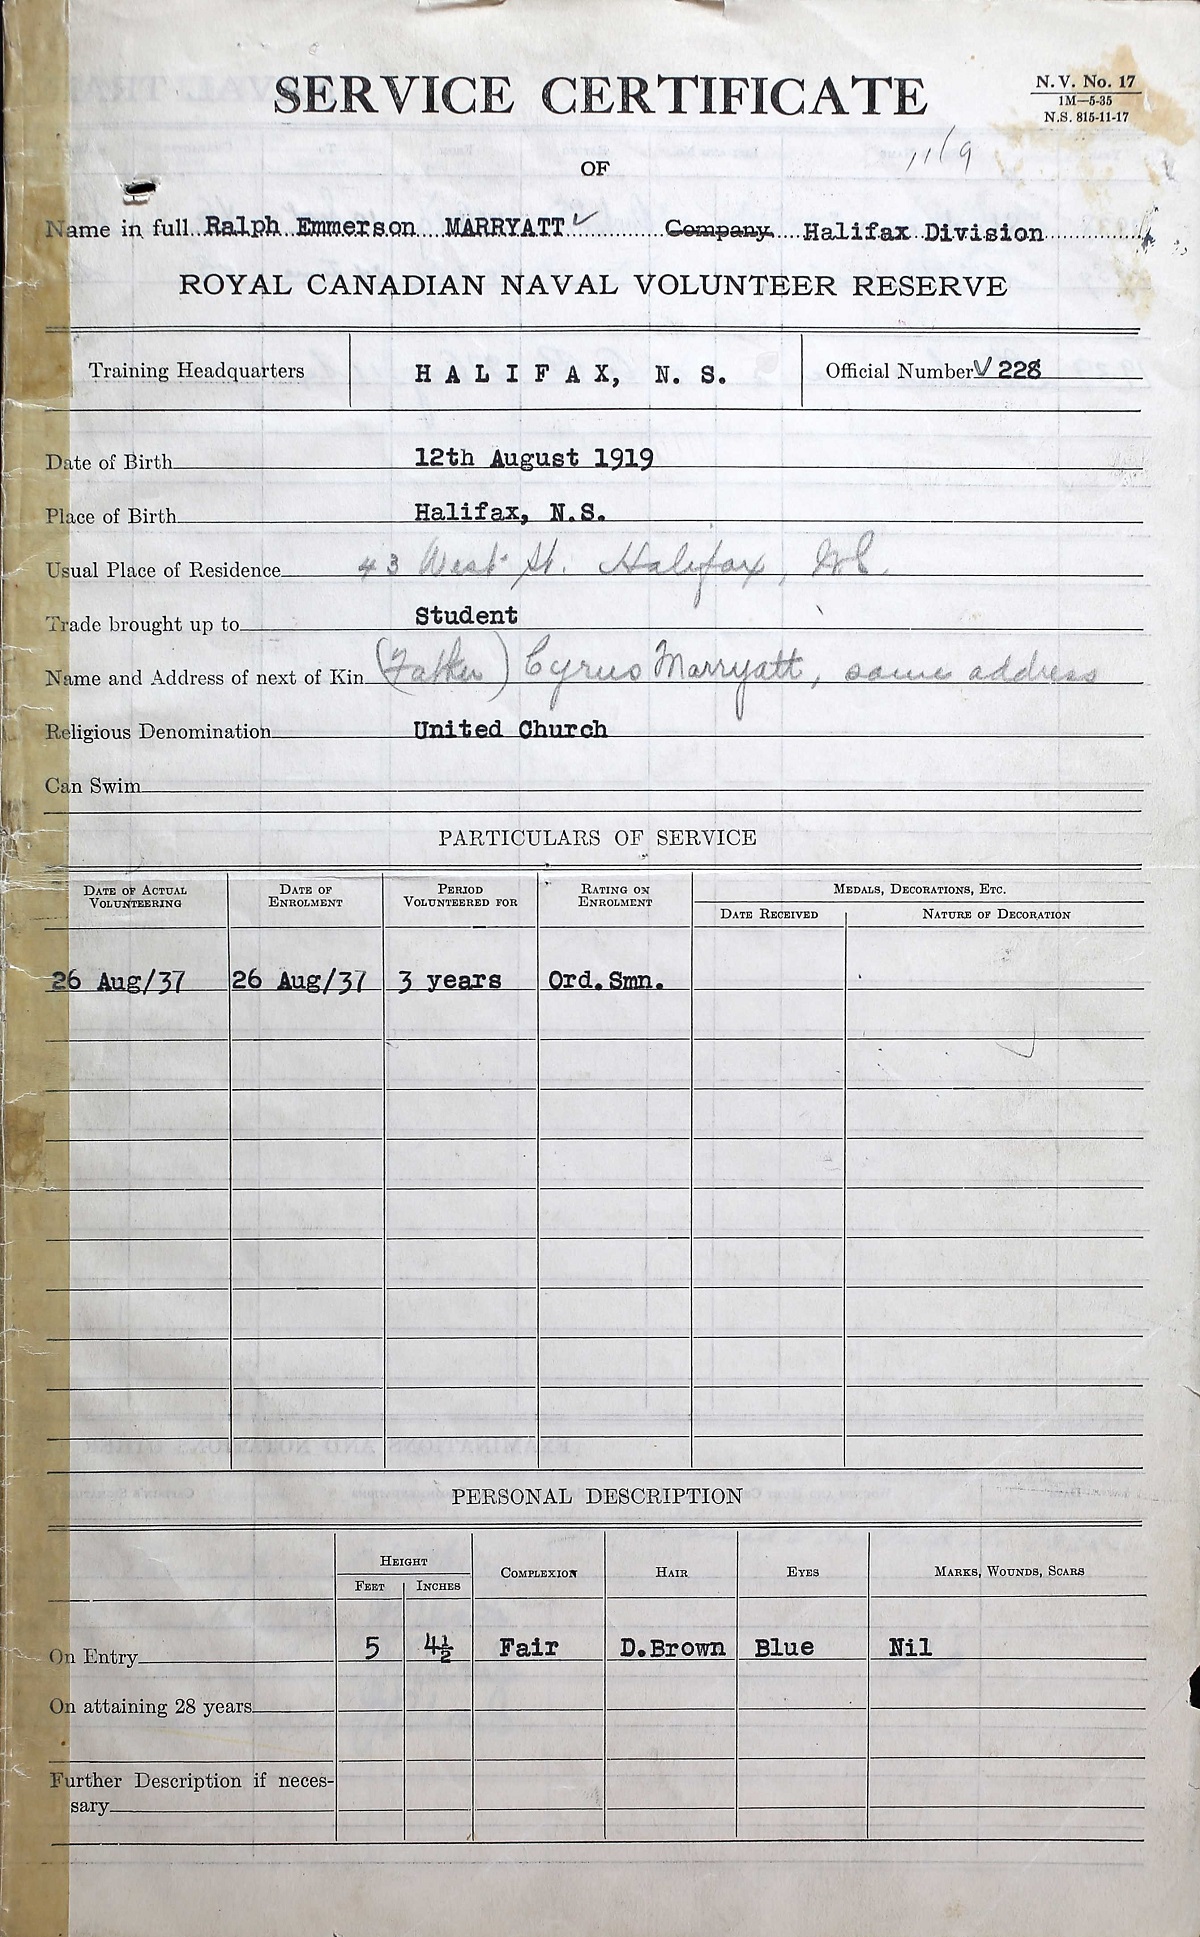 SERVICE CERTIFICATE
N.V. No. 17
1M—5-35
N.S. 815-11-17
11/9
OF
Name in full Ralph Emmerson MARRYATT ✓ Company Halifax Division
ROYAL CANADIAN NAVAL VOLUNTEER RESERVE
Training Headquarters HALIFAX, N. S. Official Number V 228
Date of Birth 12th August 1919
Place of Birth Halifax, N.S.
Usual Place of Residence 43 West St. Halifax, N.S.
Trade brought up to Student
Name and Address of next of Kin (Father) Cyrus Marryatt, same address
Religious Denomination United Church
Can Swim
PARTICULARS OF SERVICE
DATE OF ACTUAL VOLUNTEERING DATE OF ENROLMENT PERIOD VOLUNTEERED FOR RATING ON ENROLMENT MEDALS, DECORATIONS, ETC.
DATE RECEIVED NATURE OF DECORATION
26 Aug/37 26 Aug/37 3 years Ord. Smn.
PERSONAL DESCRIPTION
HEIGHT COMPLEXION HAIR EYES MARKS, WOUNDS, SCARS
FEET INCHES
On Entry 5 4½ Fair D.Brown Blue Nil
On attaining 28 years
Further Description if neces-
sary